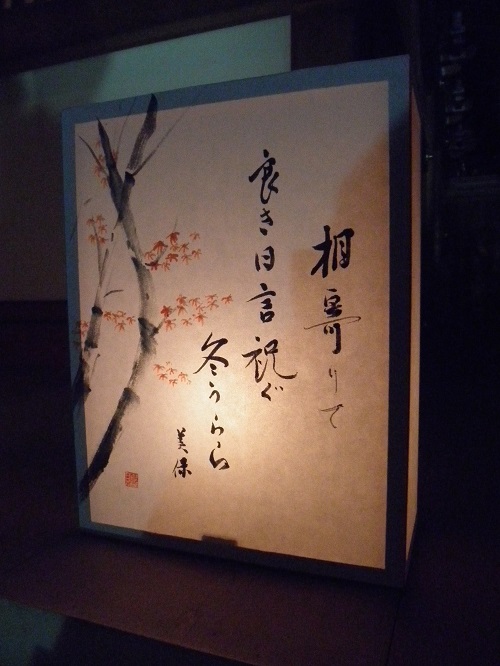 相寄りて
良き日言祝ぐ
冬うらら
美保